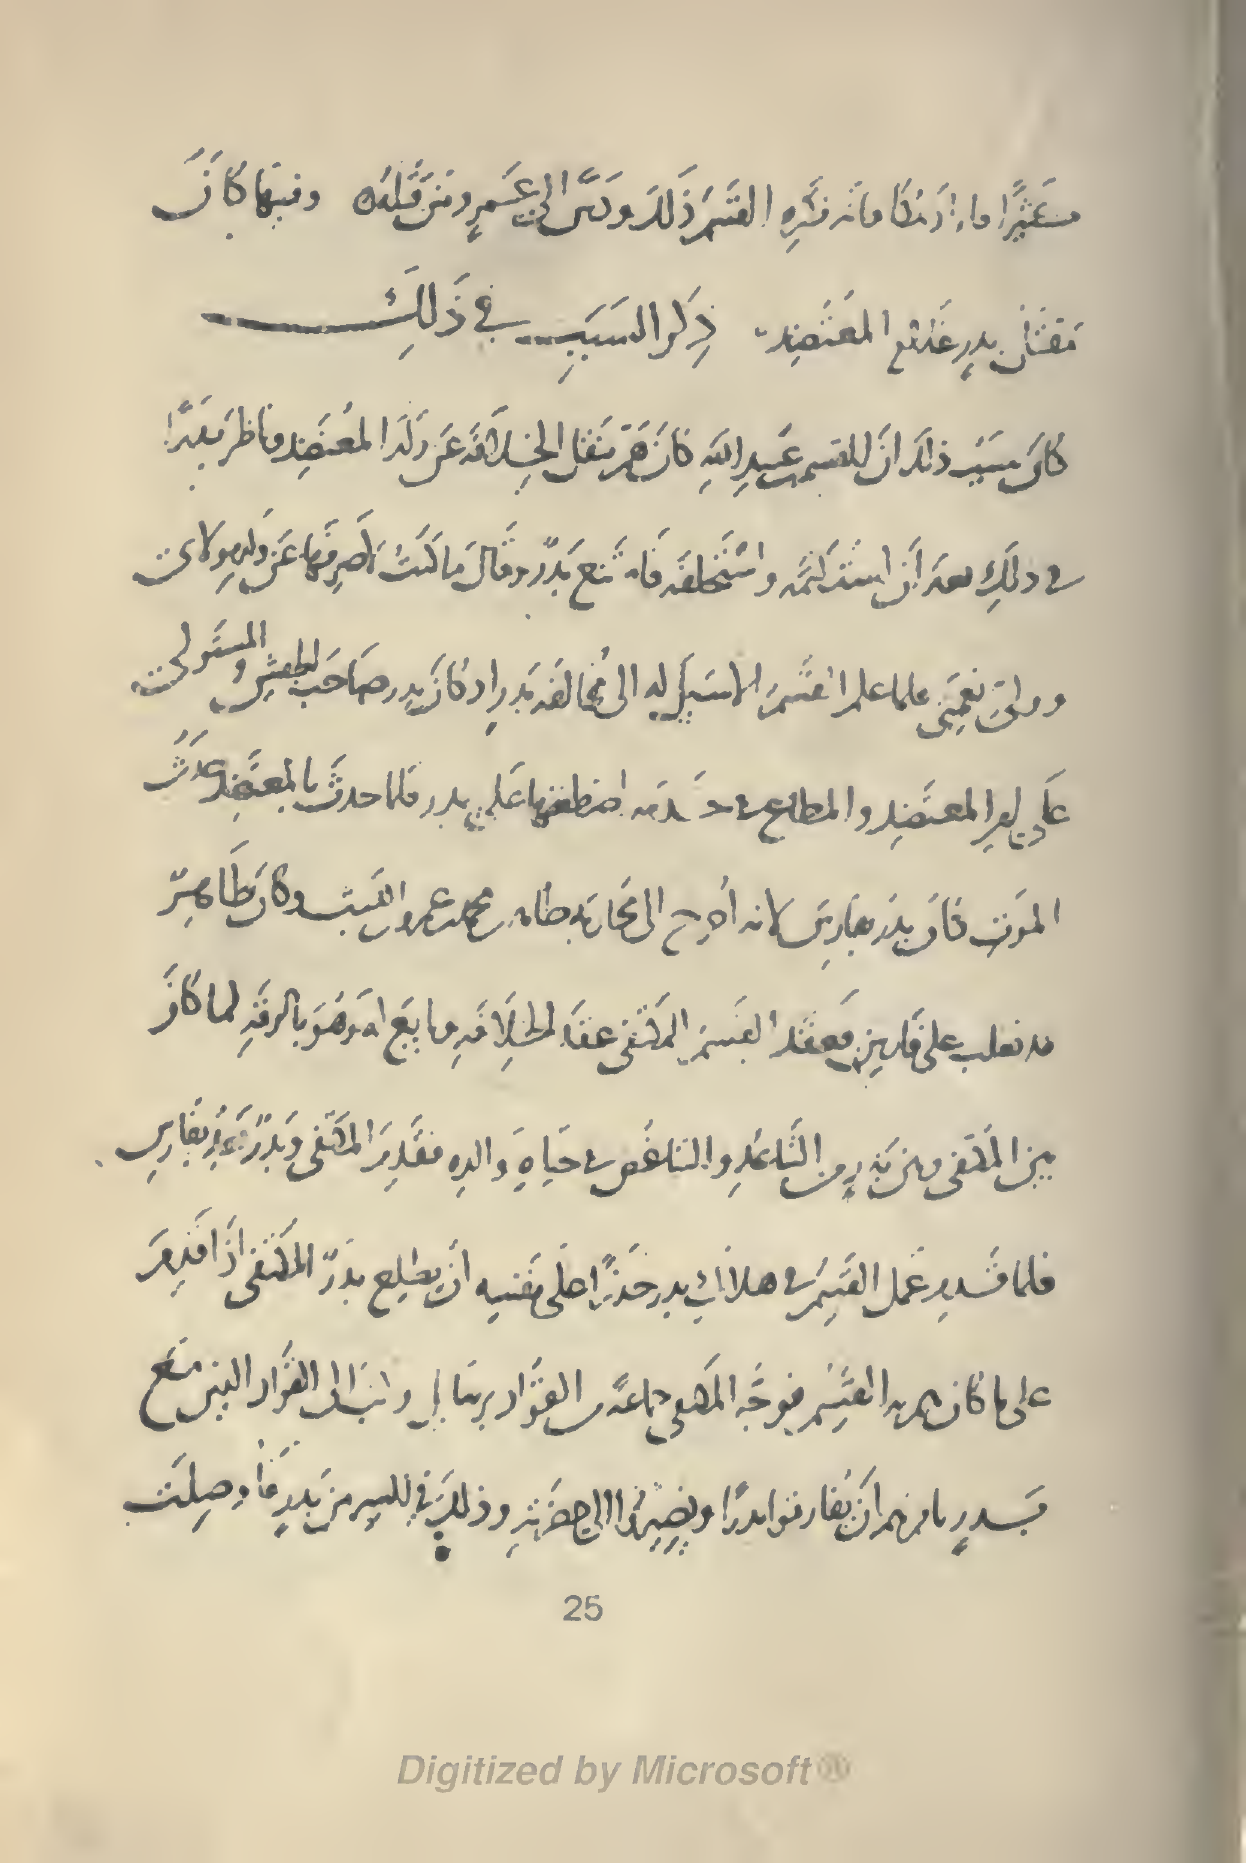 كثيرا ما فكره القسم ذلك ودس الى عمرو من قتله وفيها كان
مقتل بدر غلام المعتضد ذكر السبب في ذلك
كان سبب ذلك ان القسم بن عبيد الله كان هم بنقل الخلافة عن ولد المعتضد وناظر بدرا
في ذلك بعد أن استكتمه واستحلفه فامتنع بدر وقال ما كنت لأصرفها عن ولد مولاى
وولى نعمتى فلما علم القسم الا سبيل له الى مخالفة بدر اذ كان بدر صاحب الجيش والمستولى
على امر المعتضد والمطاع في خدمه اضطغنها على بدر فلما حدث بالمعتضد حدث
الموت كان بدر بفارس لانه اخرج الى محاربة طاهر بن محمد بن عمرو بن الليث وكان طاهر
قد تغلب على فارس فعقد القسم للمكتفى عقد الخلافة وبايع له وهو بالرقة لما كان
بين المكتفى وبين بدر من التباعد والتباغض في حياة والده فقدم المكتفى وبدر بعد بفارس
فلما قدم عمل القسم في هلاك بدر حذرا على نفسه أن يطلع بدر المكتفى اذا قدم
على ما كان هم به القسم فوجه المكتفى جماعة من القواد برسايل وكتب الى القواد الذين مع
بدر يامرهم أن يفارقوا بدرا ويصيروا الى حضرته وذلك في السر من بدر فأوصلت
25
Digitized by Microsoft®